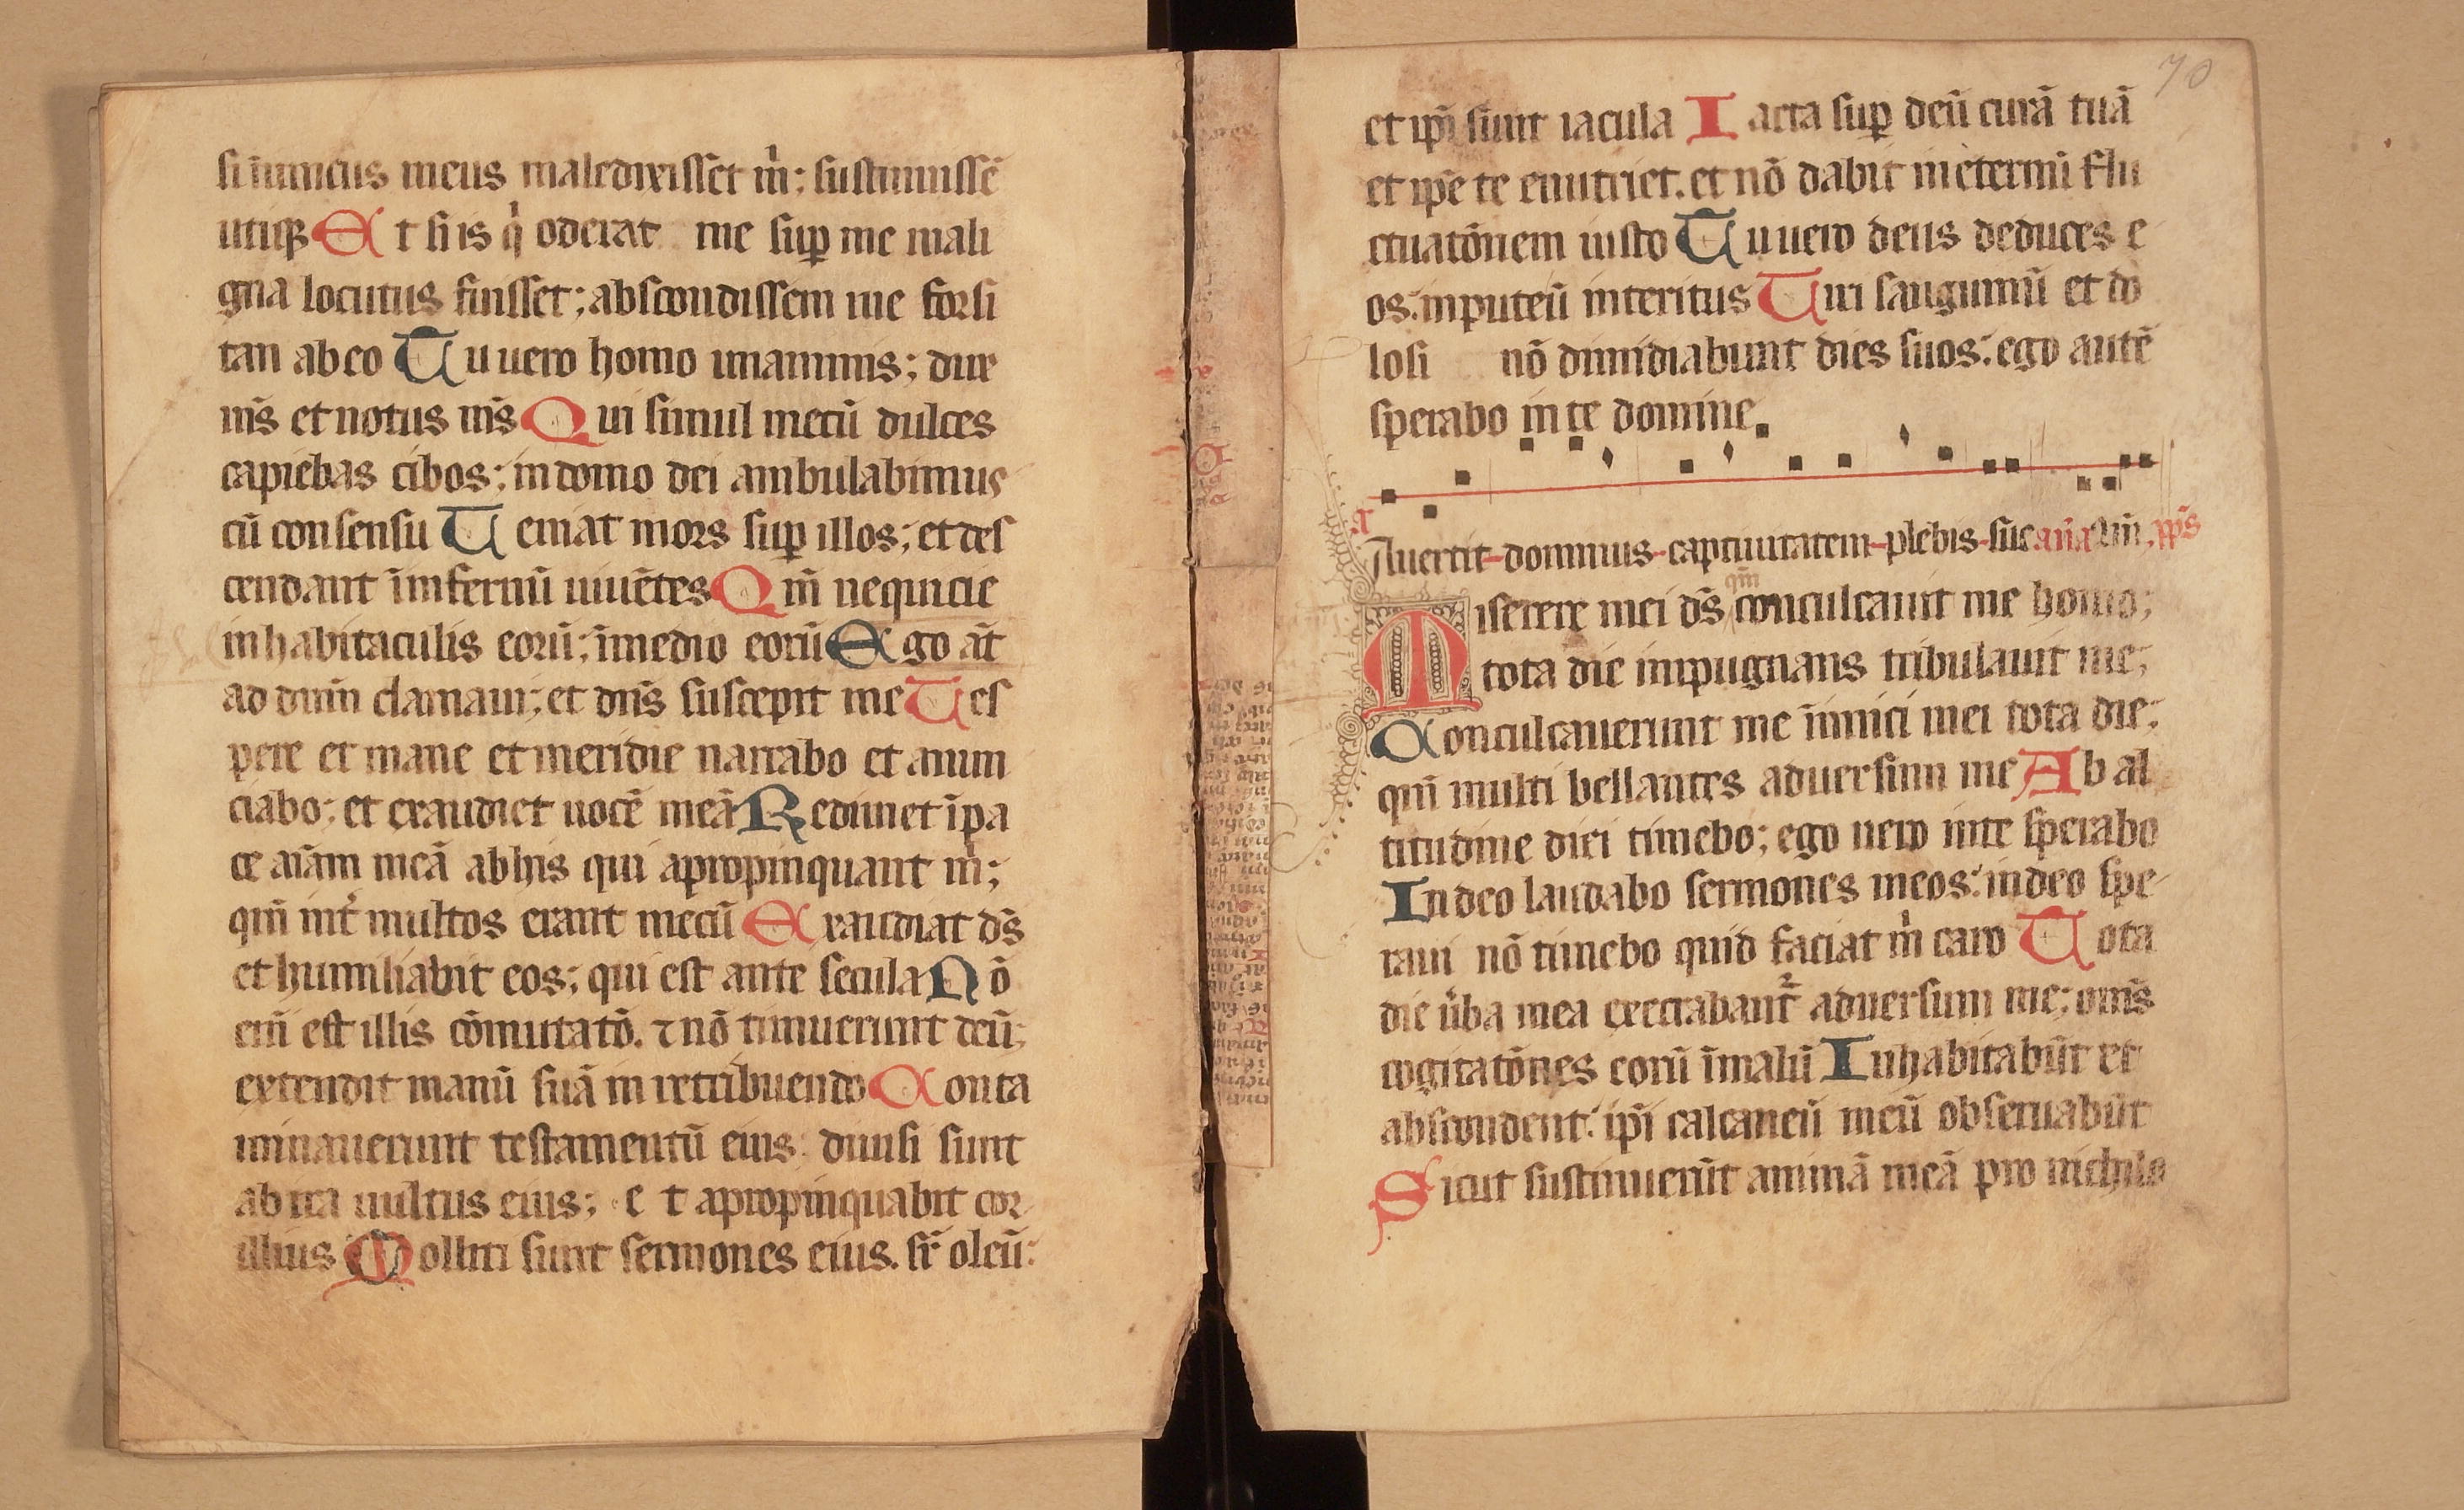 si īimicus meus maledixisset m̄; sustinuissē
utiqꝫ Et si is q̇ oderat me suꝑ me mali
gna locutus fuisset; abscondissem me forsi
tan ab eo Tu uero homo unanimis; dux
m̄s et notus m̄s Qui simul mecū dulces
capiebas cibos; in domo dei ambulabimus
cū consensu Ueniat mors suꝑ illos; et des
cendant īinfernū uiuētes Qm̄ nequicie
in habitaculis eorū; īmedio eorū Ego at̄
ad dnm̄ clamaui; et dn̄s suscepit me Ues
pere et mane et meridie narrabo et anun
ciabo; et exaudiet uocē meā Redimet īpa
ce aīam meā ab his qui apropinquant m̄;
qm̄ int̄ multos erant mecū Exaudiat ds̄
et humiliabit eos; qui est ante secula Nō
em̄ est illis cōmutatō. ⁊ nō timuerunt deū;
extendit manū suā in retribuendo Conta
minauerunt testamentū eius diuisi sunt
ab ira uultus eius; et apropinquabit cor
illius Molliti sunt sermones eius. sr̄ oleū;
70
et ip̄i sunt iacula Iacta suꝑ deū curā tuā
et ip̄e te enutriet. et nō dabit in eternū flu
ctuatōnem iusto Tu uero deus deduces e
os; in puteū interitus Uiri sanguinū et do
losi nō dimidiabunt dies suos; ego autē
sperabo in te domine.
Auertit dominus captiuitatem plebis sue añ
Miserere mei ds̄ qm̄ conculcauit me homo;
tota die inpugnans tribulauit me;
Conculcauerunt me īimici mei tota die;
qm̄ multi bellantes aduersum me Ab al
titudine diei timebo; ego uero in te sperabo
In deo laudabo sermones meos; in deo spe
raui nō timebo quid faciat m̄ caro Tota
die u̇ba mea execrabant᷑ aduersum me; om̄s
cogitatōnes eorū īmalū Inhabitabūt et
abscondent; ip̄i calcaneū meū obseruabūt
Sicut sustinuerūt animā meā pro nichilo